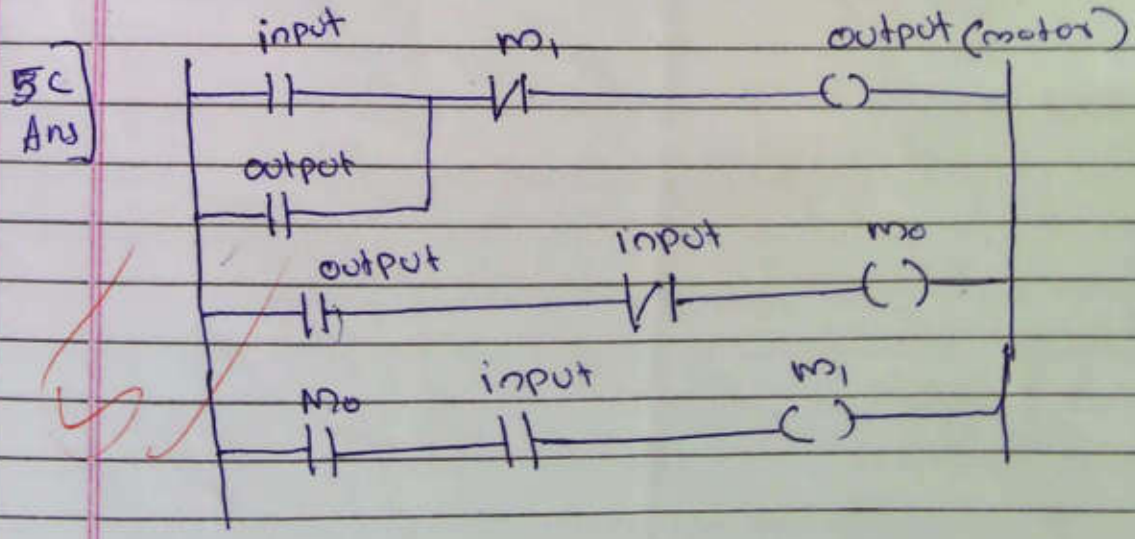 5C
Ans
input m1 output (motor)
output
output input m0
M0 input m1